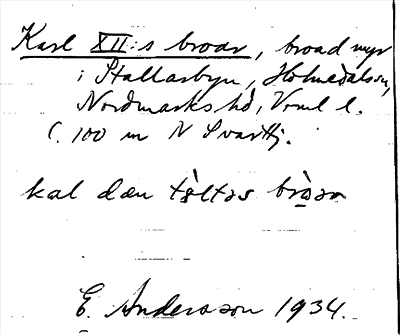 Karl XII:s broar, broad myr
i Stallarbyn, Holmedals sn,
Nordmarks hd, Vrml l.
C. 100 m N Svarttj.
kal dæn tɷ̀ltəs brɷ̀ar
E. Andersson 1934.